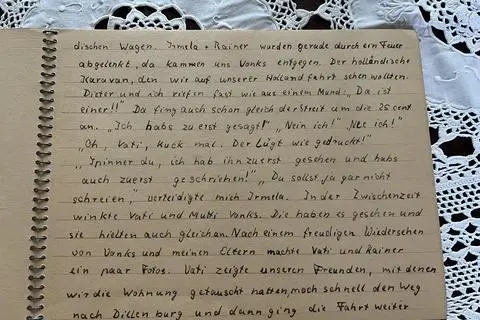 dischen Wagen. Irmela + Rainer wurden gerade durch ein Feuer
abgelenkt, da kamen uns Vonks entgegen. Der holländische
Karavan, den wir auf unserer Hollandfahrt sehen wollten.
Dieter und ich riefen fast wie aus einem Mund: „Da ist
einer!!" Da fing auch schon gleich der Streit um die 25 cent
an. „Ich habs zuerst gesagt!" „Nein ich!" „Nee ich!"
„Oh, Vati, kuck mal. Der lügt wie gedruckt!"
„Spinner du, ich hab ihn zuerst gesehen und habs
auch zuerst geschriehen!" „Du sollst ja gar nicht
schreien," verteidigte mich Irmela. In der Zwischenzeit
winkte Vati und Mutti Vonks. Die haben es gesehen und
sie hielten auch gleich an. Nach einem freudigen Wiedersehen
von Vonks und meinen Eltern machte Vati und Rainer
ein paar Fotos. Vati zeigte unseren Freunden, mit denen
wir die Wohnung getauscht hatten, noch schnell den Weg
nach Dillenburg und dann ging die Fahrt weiter